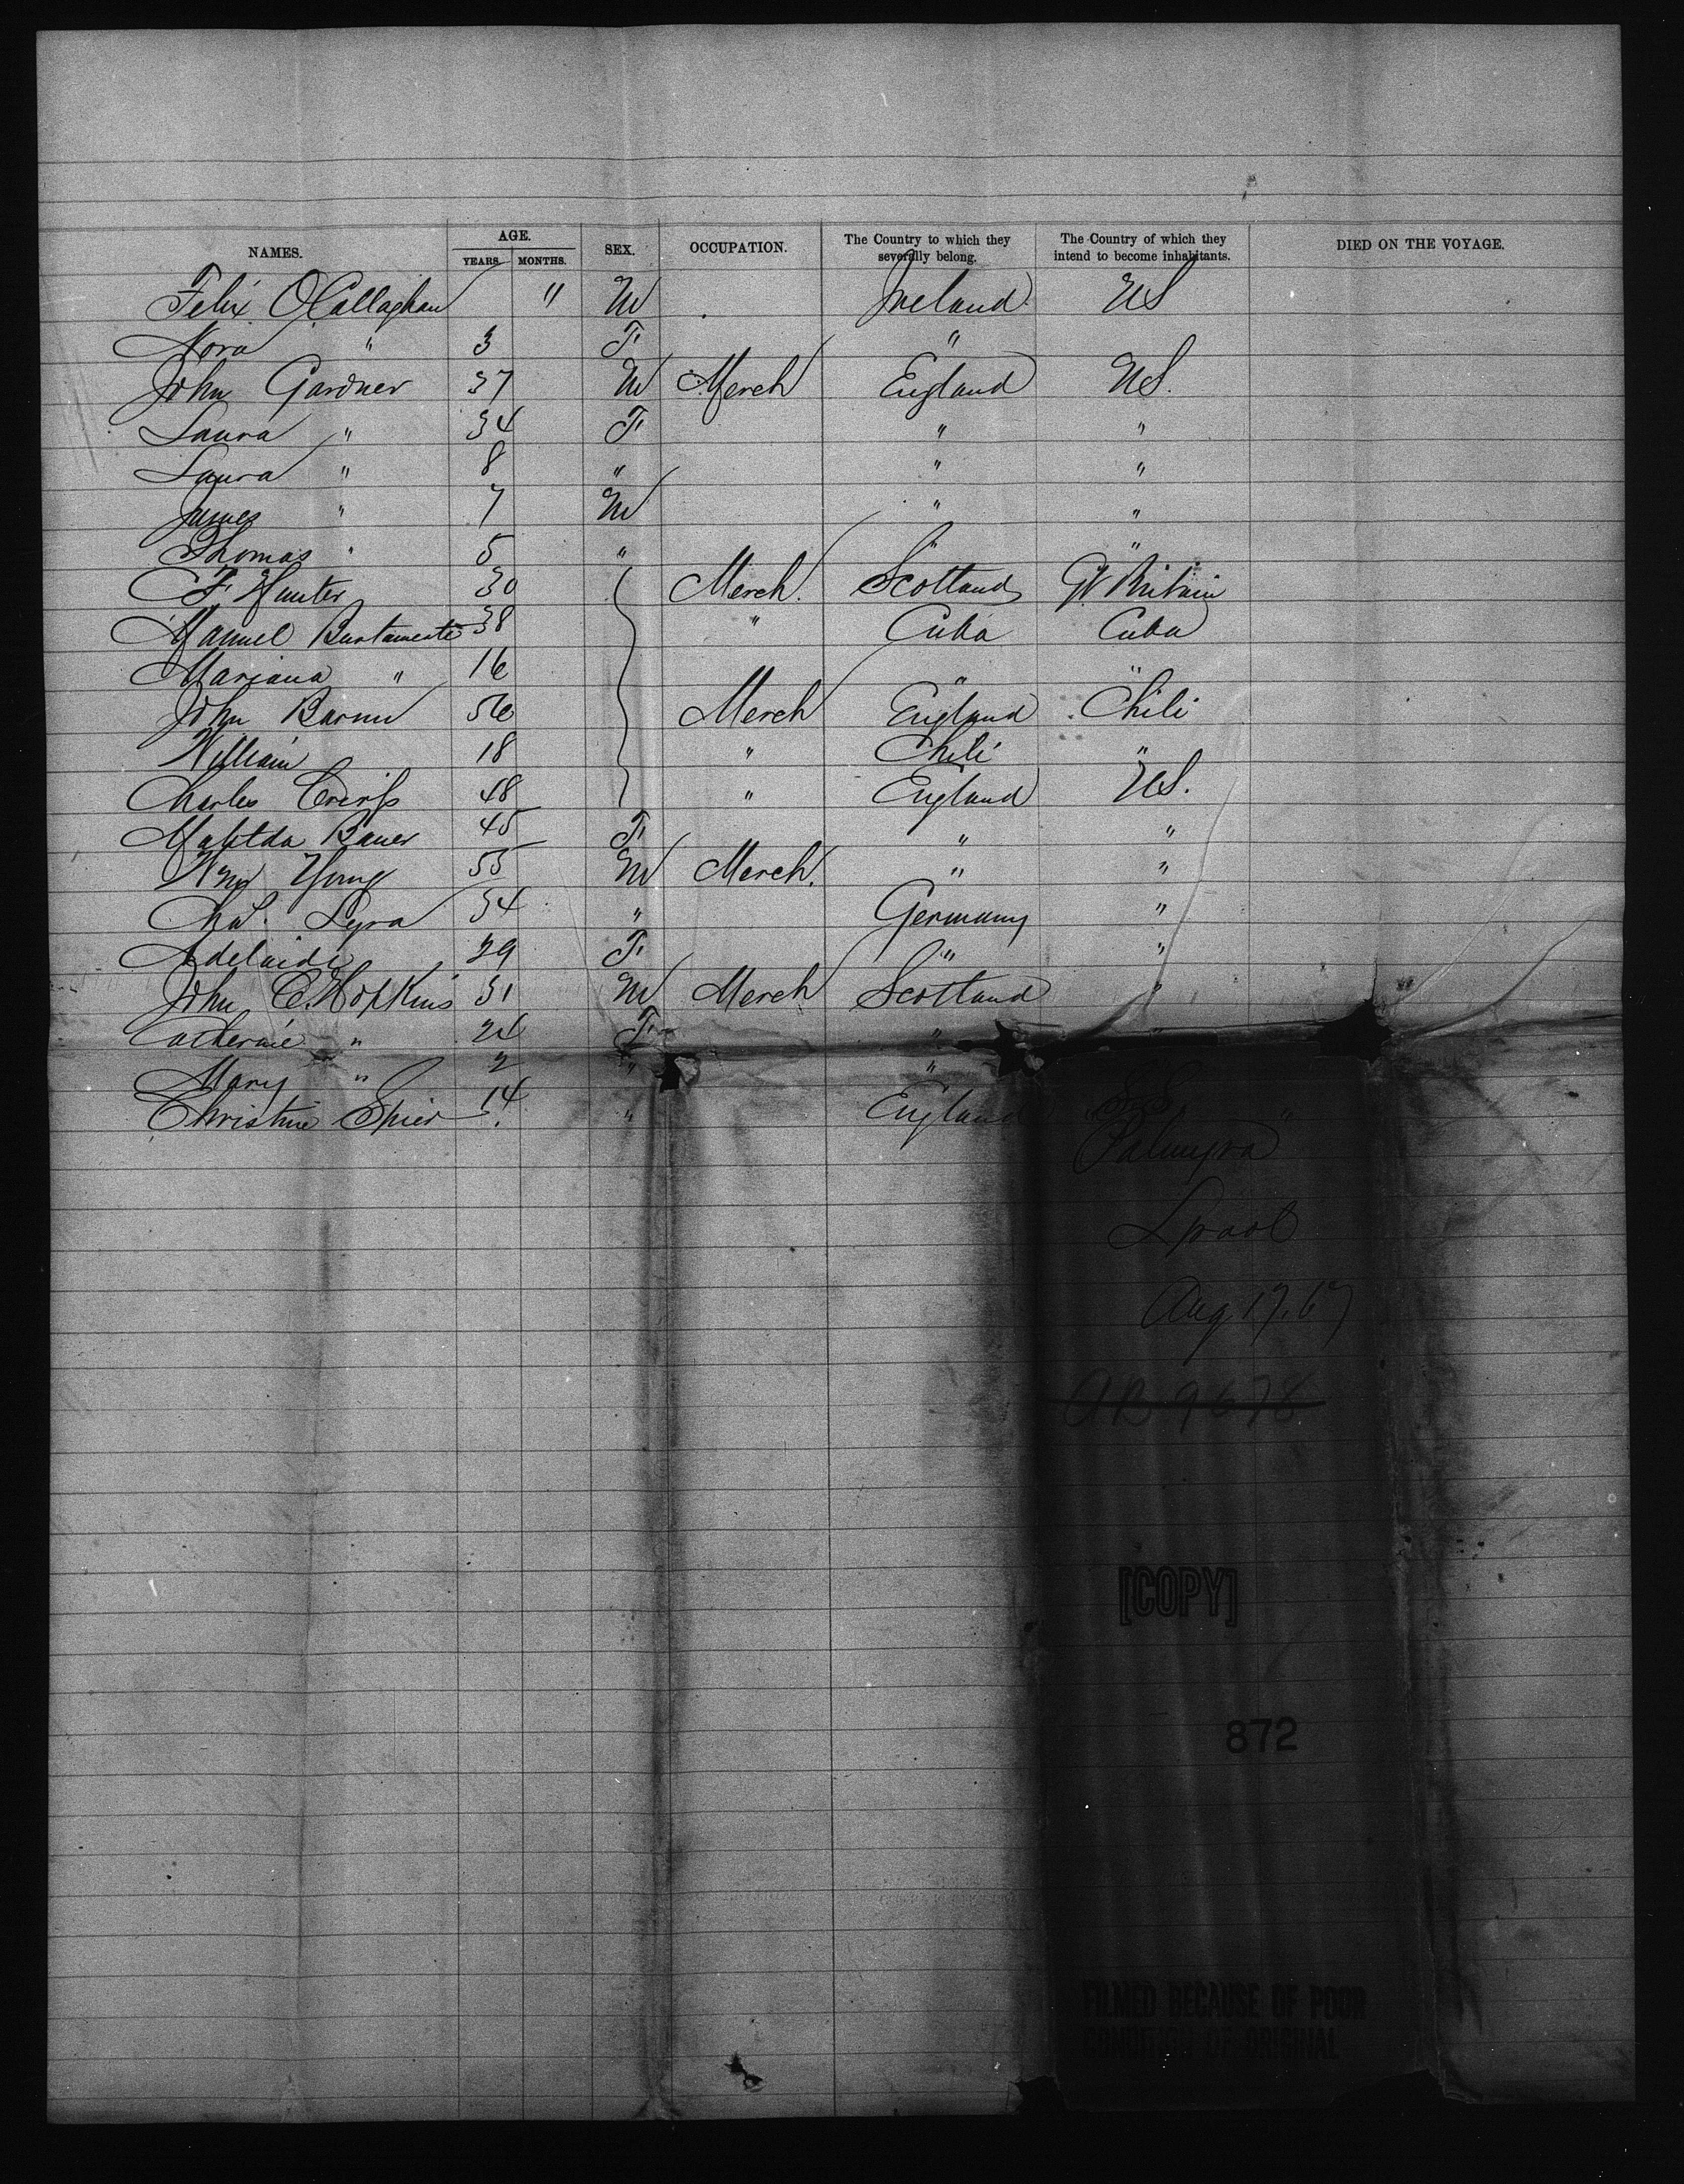 NAMES. AGE. YEARS. MONTHS. SEX. OCCUPATION. The Country to which they severally belong. The Country of which they intend to become inhabitants. DIED ON THE VOYAGE.
Felix O'Callaghan " M Ireland US
Nora " 3 F "
John Gardner 37 M Merch England US.
Laura " 34 F " "
Laura " 8 " " "
James " 7 M " "
Thomas " 5 " " "
F Hunter 30 Merch. Scotland Gt Britain
Manuel Bustamente 38 " Cuba Cuba
Mariana " 16 " "
John 56 Merch England Chili
William 18 " Chili "
Charles 48 " England US.
Matilda Bauer 45 F " "
Wm Young 55 M Merch. " "
Chas. Lyra 34 " Germany "
Adelaide 29 F " "
John C. Hopkins 31 M Merch Scotland "
Catherine " 24 F " "
Mary " 2 " "
Christine Spier 14 " England
"SS
Palmyra"
Lpool
Aug 17.67
AR 9678
[COPY]
872
FILMED BECAUSE OF POOR
CONDITION OF ORIGINAL